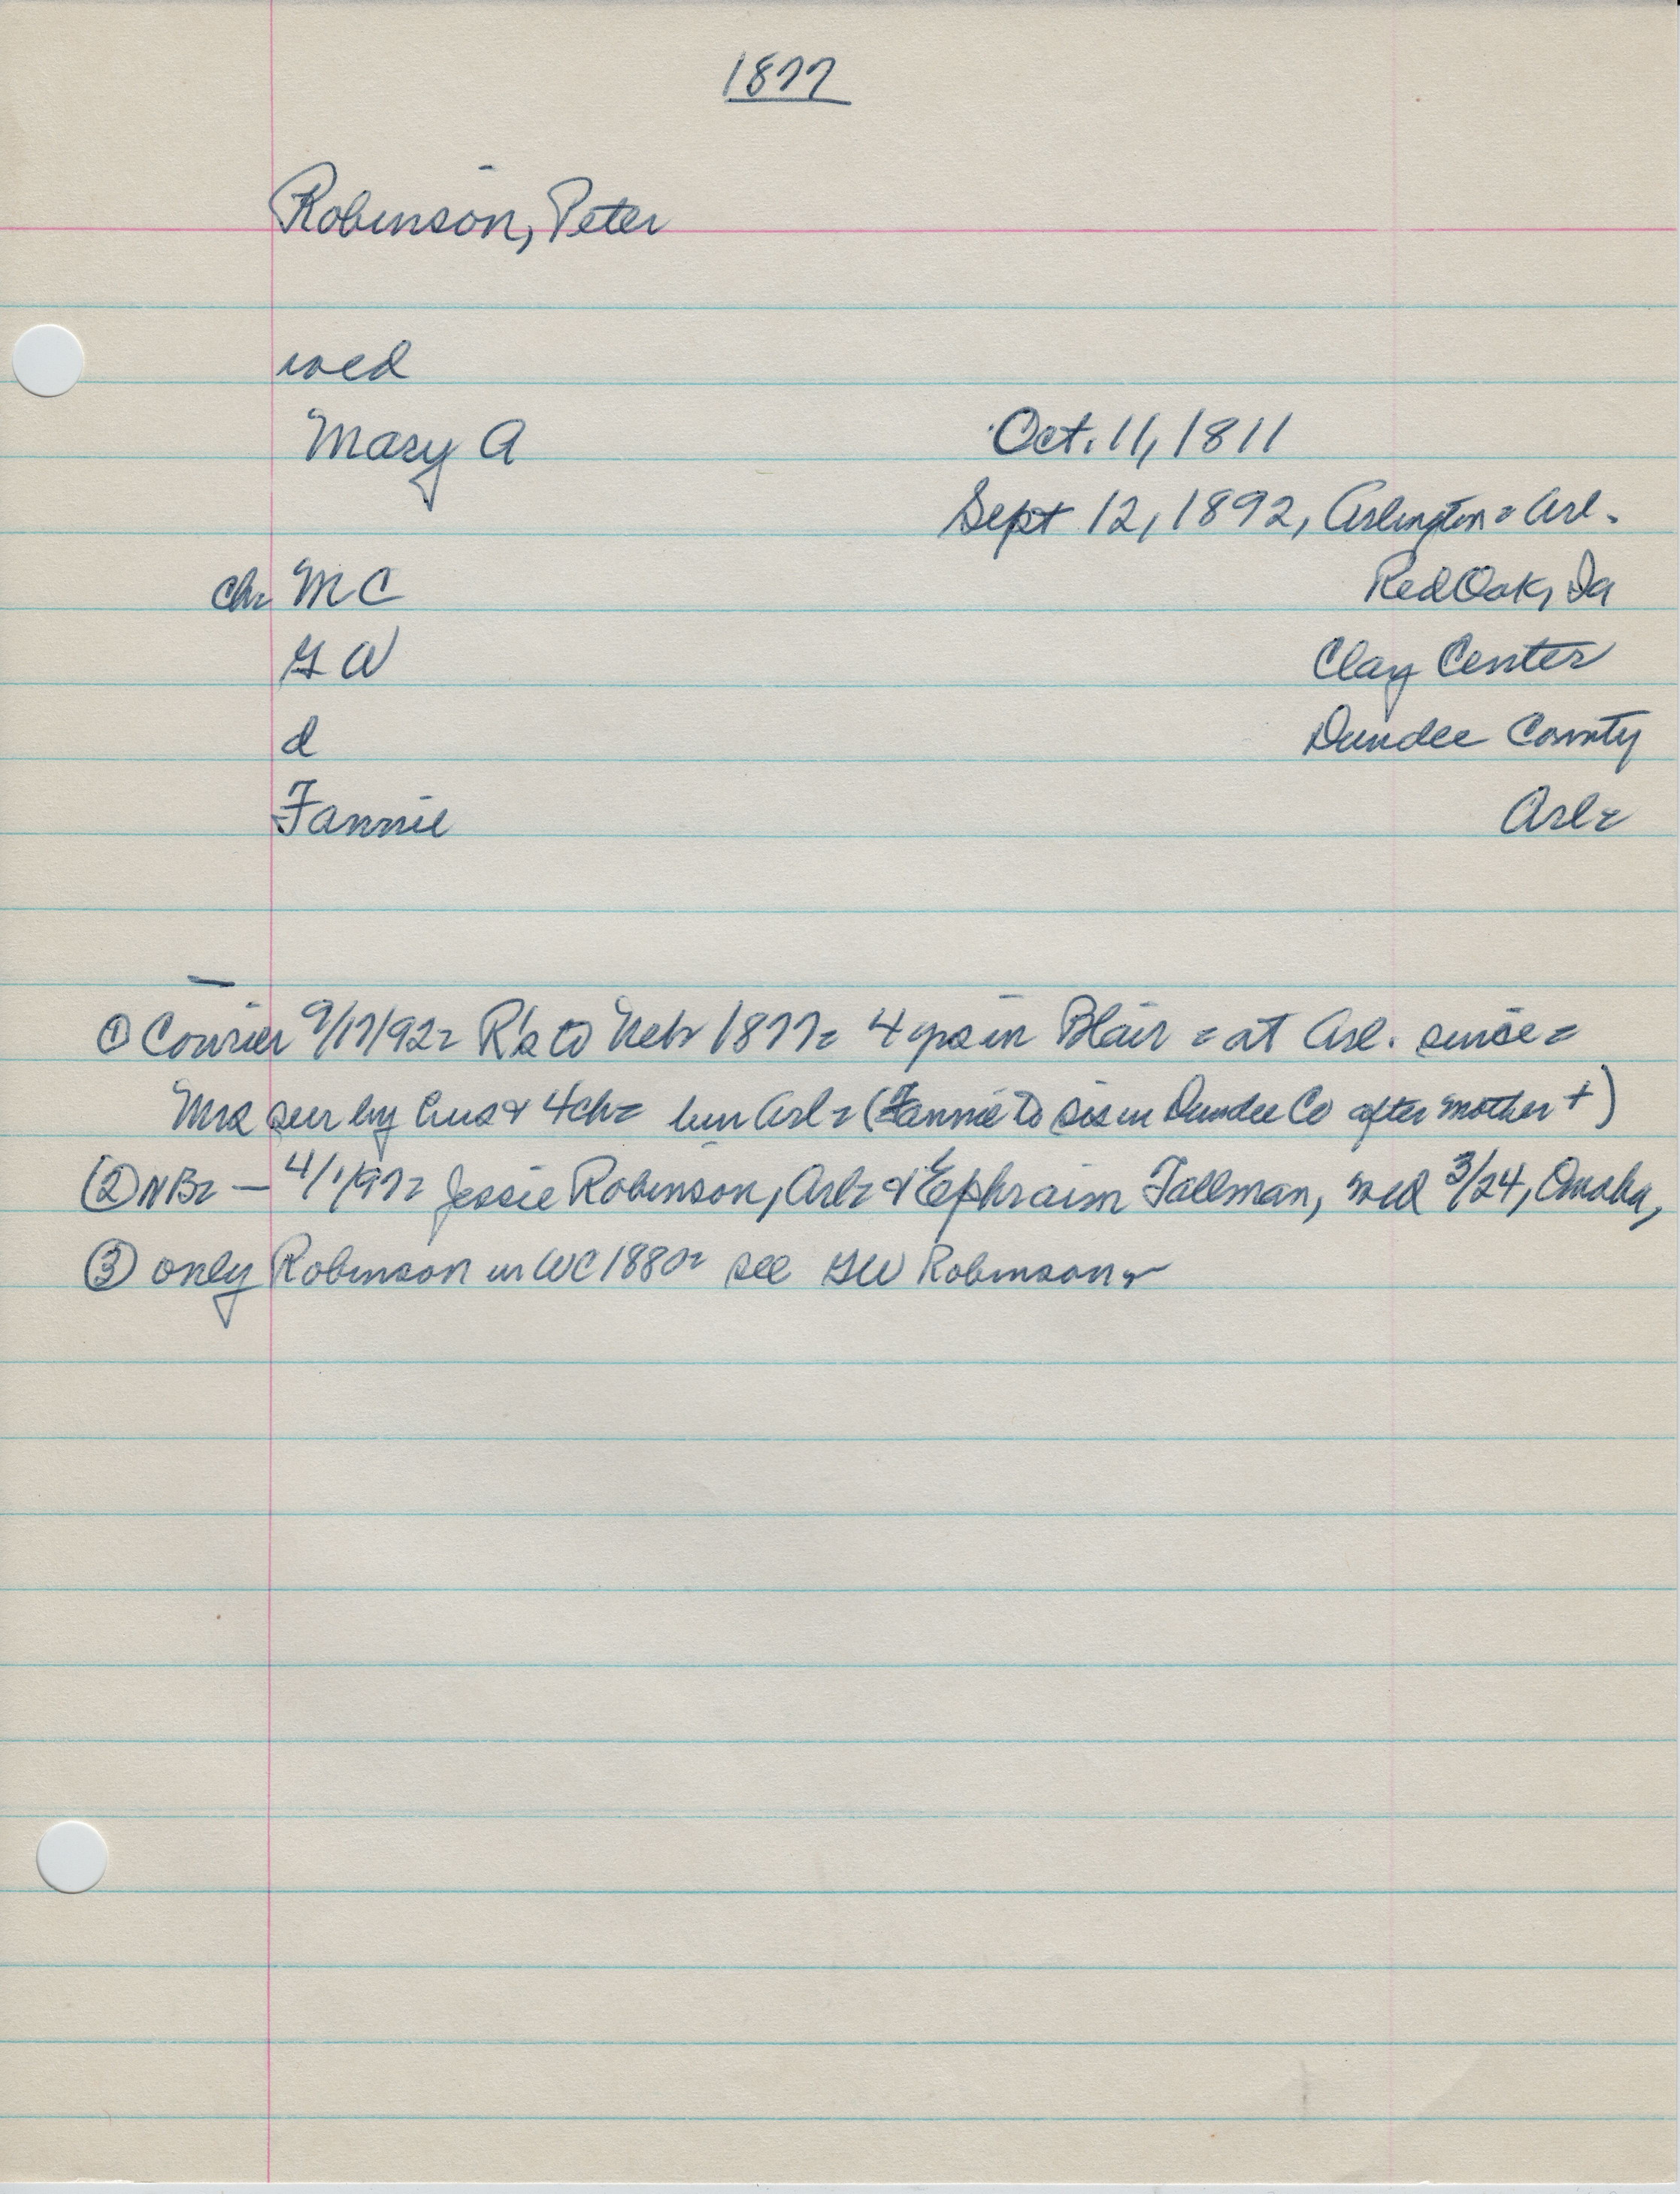 1877
Robinson, Peter
wed
Mary A Oct. 11, 1811
Sept 12, 1892, Arlington = Arl.
ch= M C Red Oak, Ia
G W Clay Center
d Dundee County
Fannie Arl=
① Courier 9/17/92= R's to Neb 1877= 4 yrs in Blair = at Arl. since=
Mrs sur by hus & 4 ch= bur Arl= (Fannie to sis in Dundee Co after mother +)
(2) NB= — 4/1/97= Jessie Robinson, Arl= & Ephraim Tallman, wed 3/24, Omaha,
③ only Robinson in WC 1880= see GW Robinson